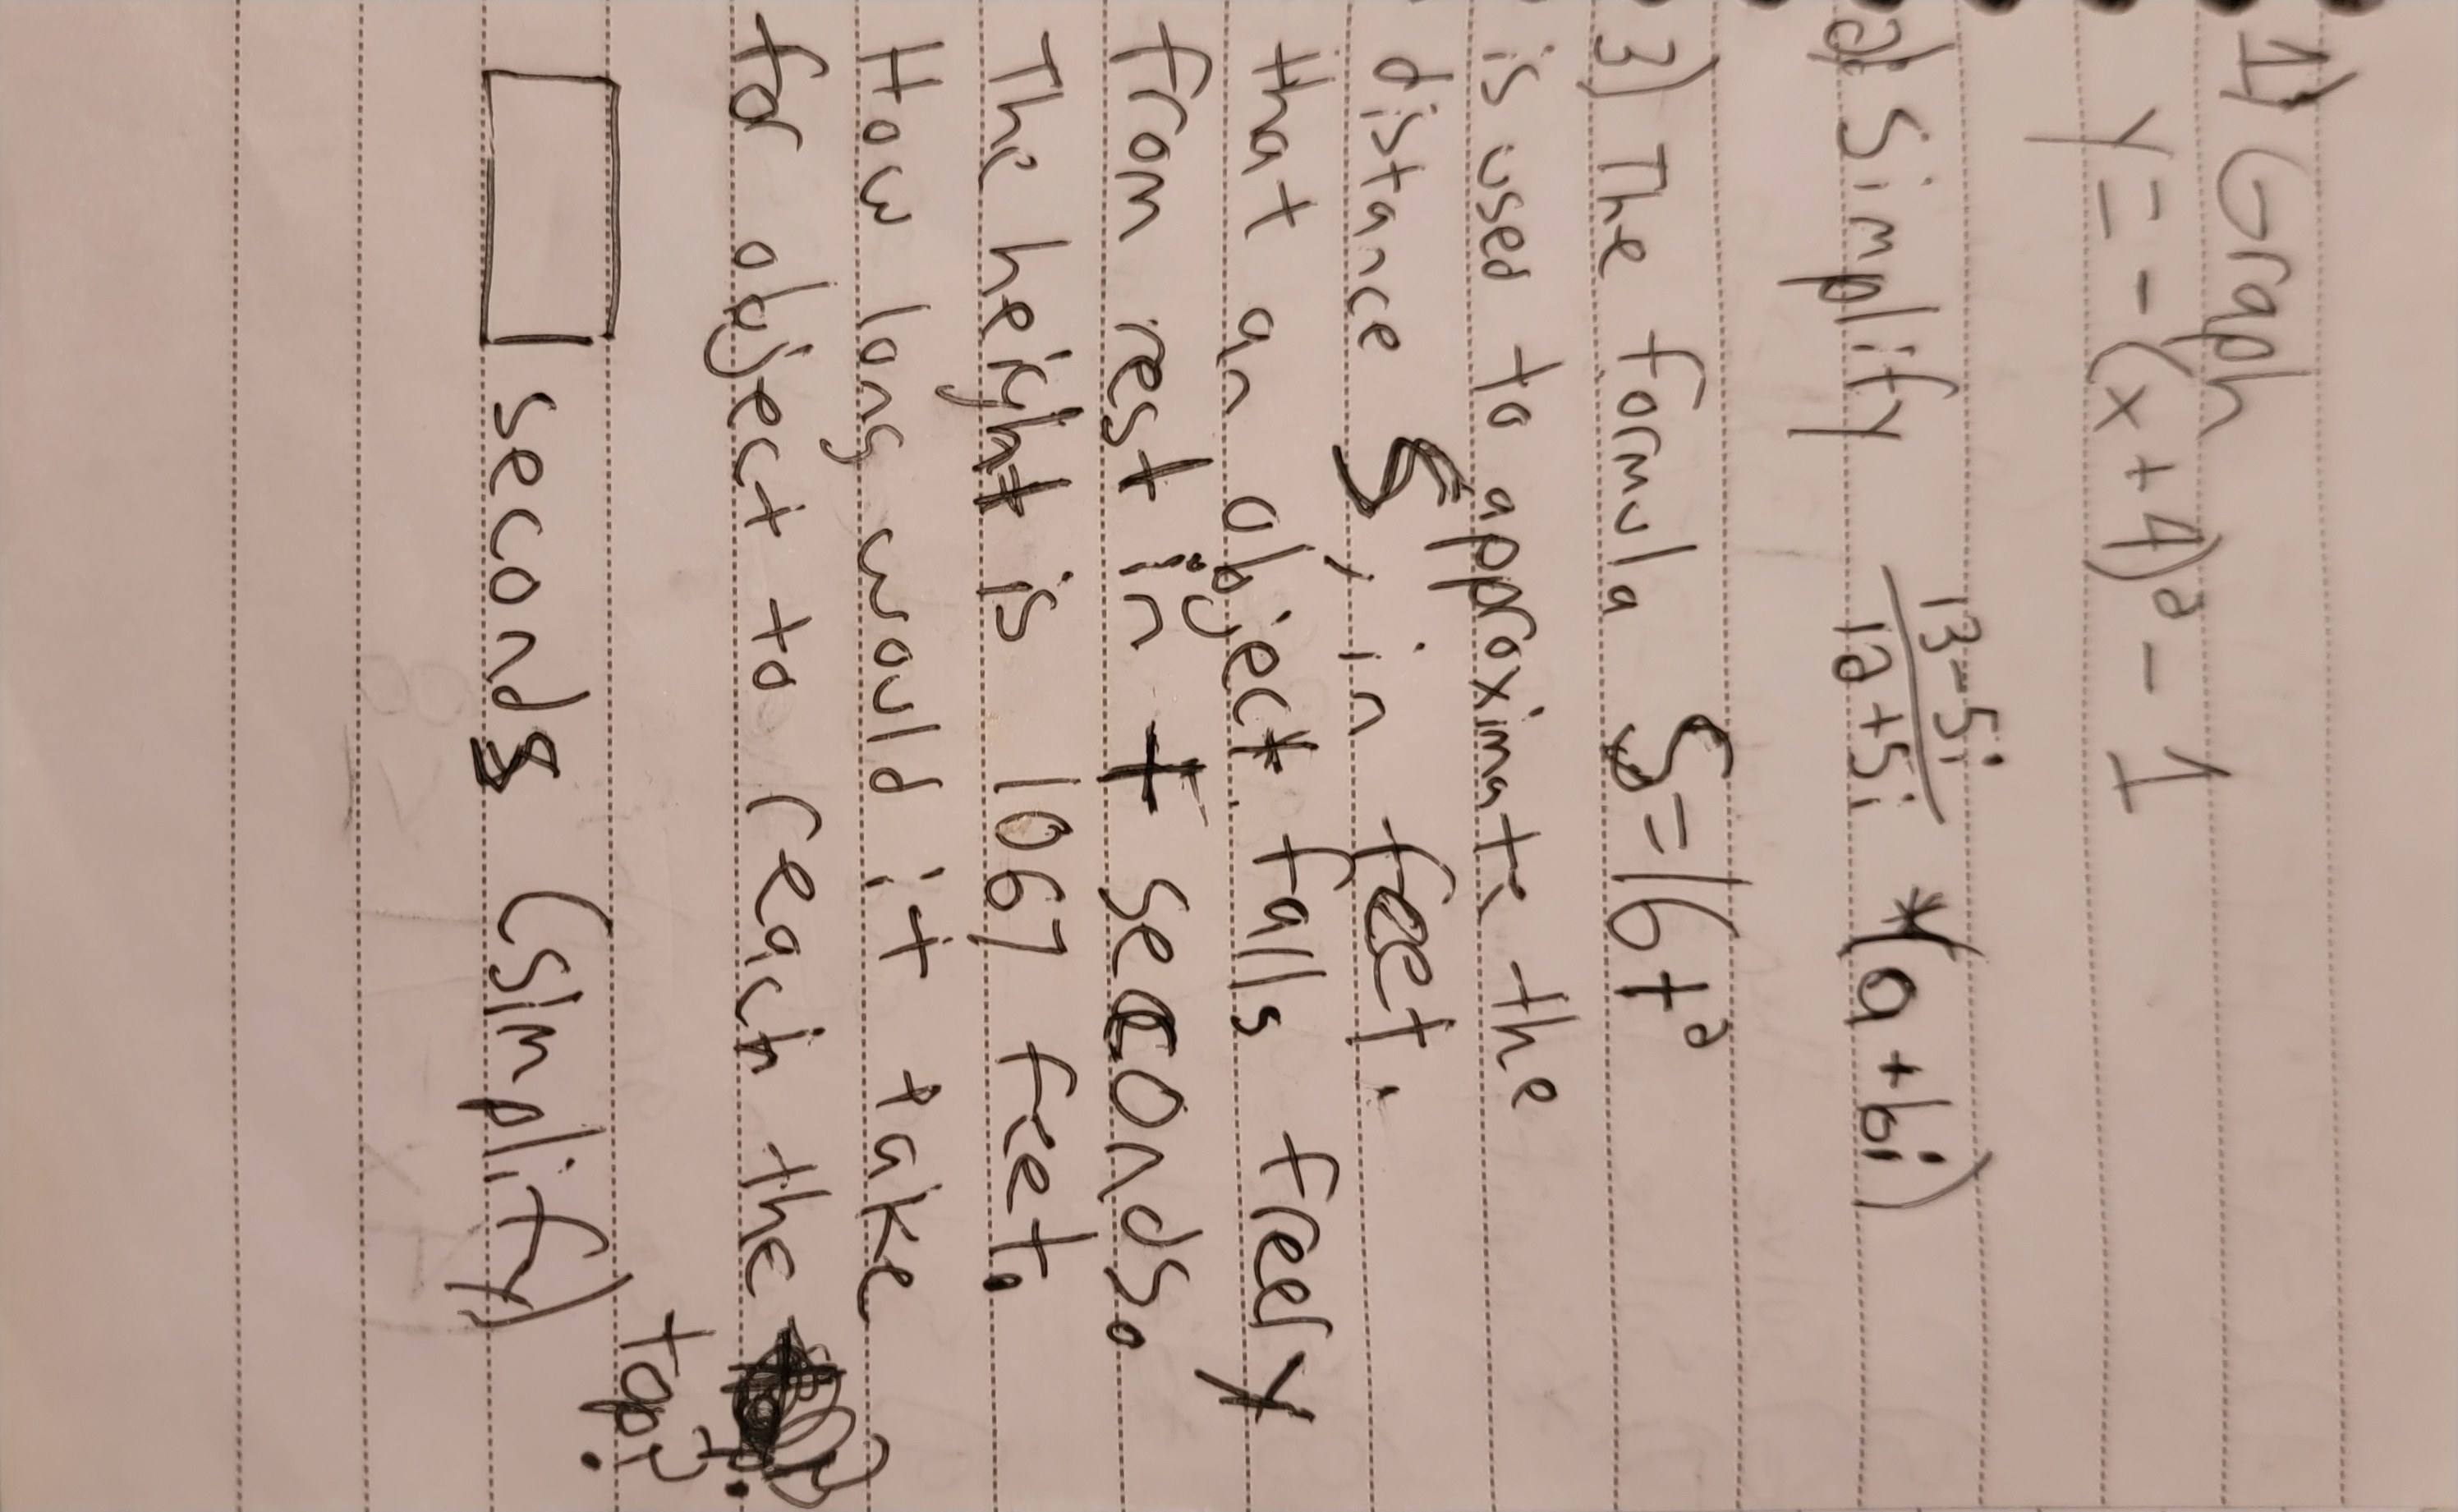 1) Graph
y = -(x+4)² - 1
2) Simplify 13-5i/12+5i *(a+bi)
3) The formula S=16t²
is used to approximate the
distance S, in feet.
that an object falls freely
from rest in t seconds.
The height is 1067 feet.
How long would it take
for object to reach the
top?
seconds (simplify)